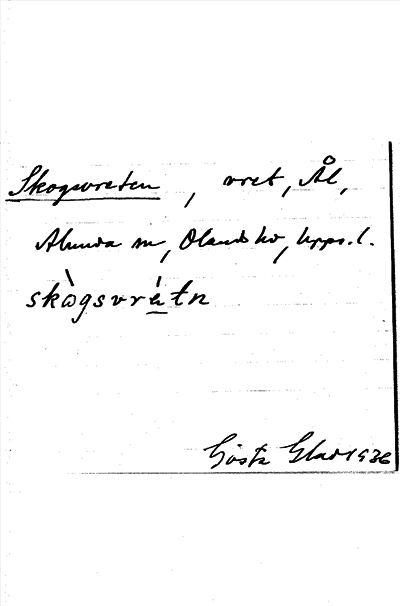 Skogsvreten, vret, Ål,
Alunda sn, Olands hd, Upps. l.
skògsvrétn
Gösta Glad 1936